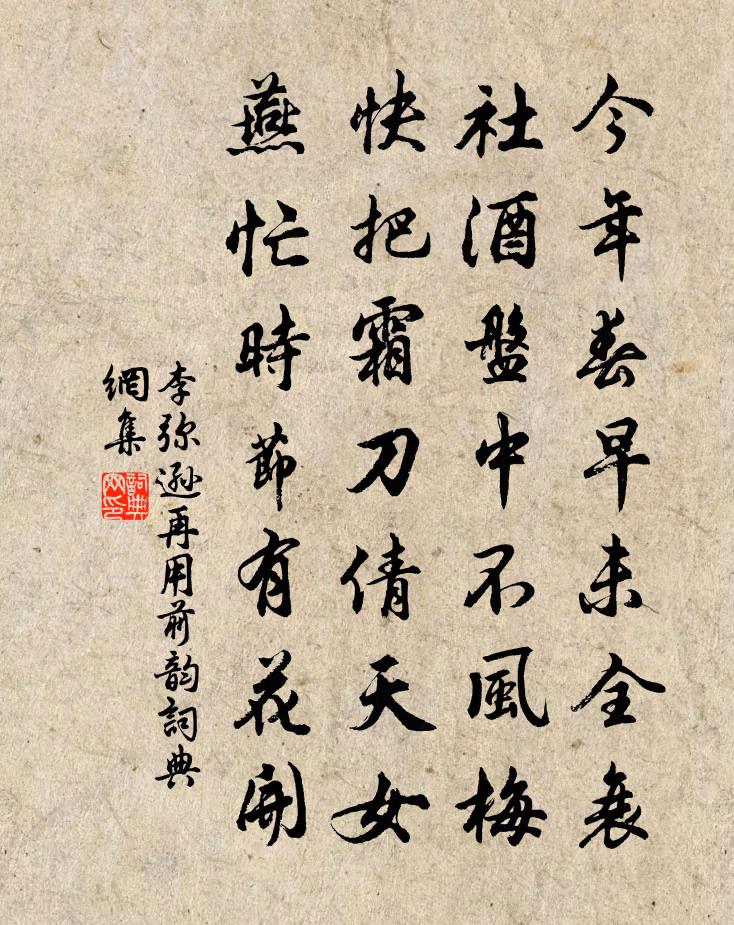 今年春早未全衰
社酒盤中不風梅
快把霜刀倩天女
燕忙時節有花開
李弥遜再用前韵詞典
網集
詞典網印